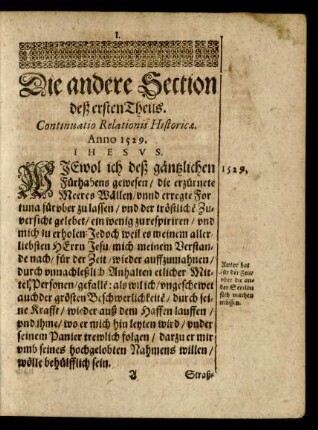 I.
Die andere Section
deß ersten Theils.
Continuatio Relationis Historicæ.
Anno 1529.
IHESVS.
WIEwol ich deß gäntzlichen
Fürhabens gewesen / die erzürnete
Meeres Wällen / vnnd erregte For
tuna fürvber zu lassen / vnd der tröstliche Zu-
versicht gelebet / ein wenig zu respiriren / vnd
mich zu erholen Jedoch weil es meinem aller-
liebsten HErrn Jesu / mich meinem Verstan-
de nach / für der Zeit / wieder auffzumahnen /
durch vnnachleßlich Anhalten etlicher Mit-
tel, Personen / gefält: als wil ich / vngeschewet
auch der grösten Beschwerlichkeite / durch sei-
ne Krafft / wieder auß dem Haffen lauffen /
vnd ihme / wo er mich hin leyten wird / vnder
seinem Panier trewlich folgen / darzu er mir
vmb seines hochgelobten Nahmens willen /
wölle behülfflich sein.
A Straß-
1529.
Autor hat
für der Zeit
vber die an-
der Section
sich machen
müssen.